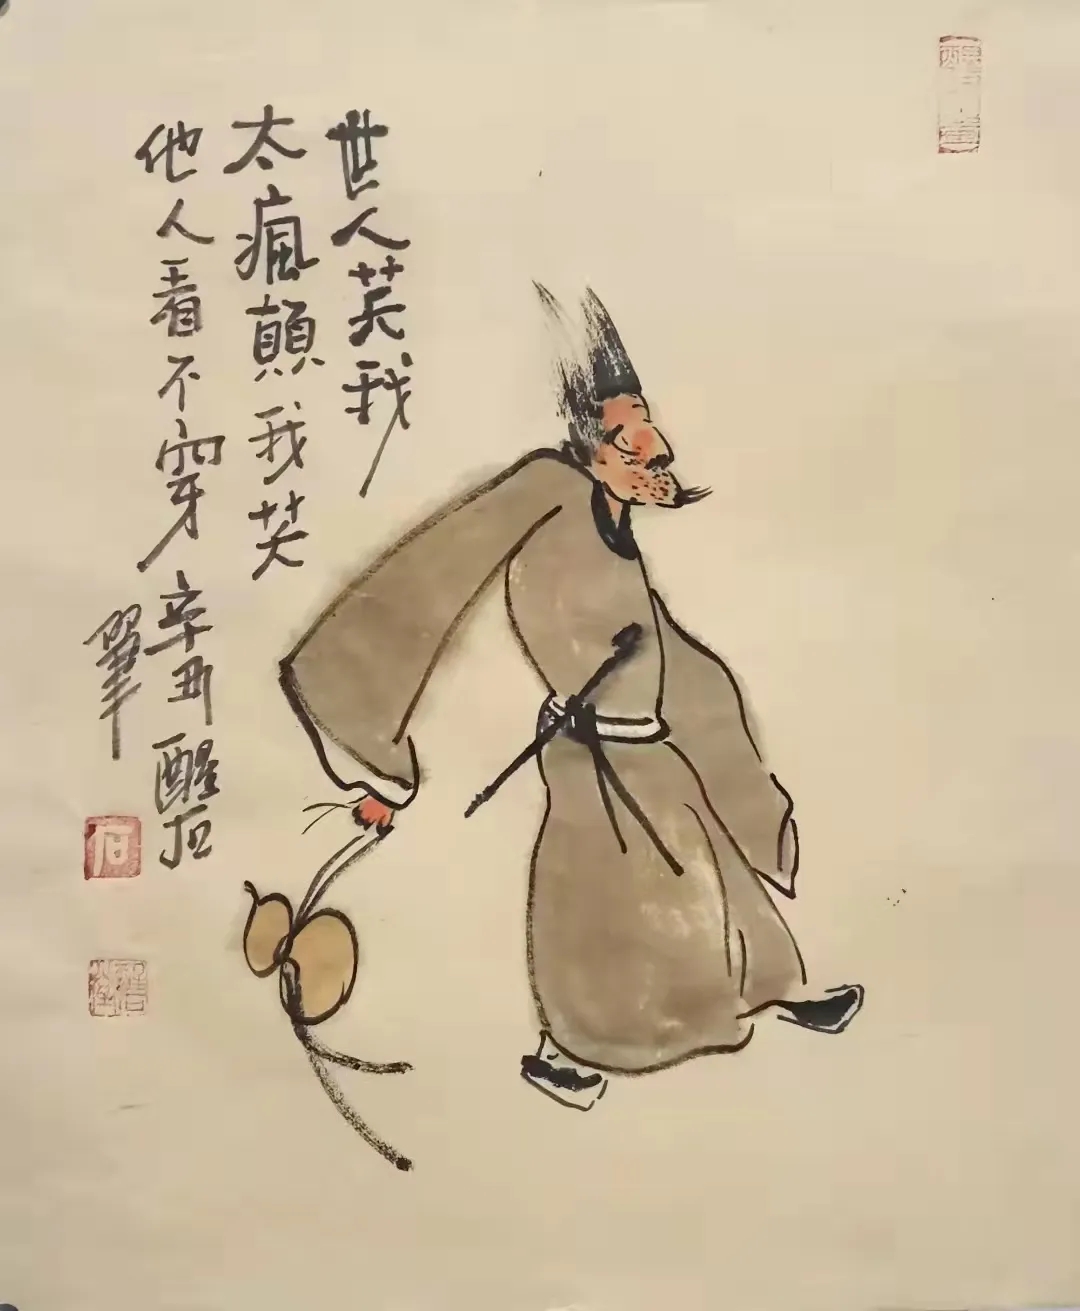 世人笑我
太瘋顛我笑
他人看不穿辛丑醒石
石